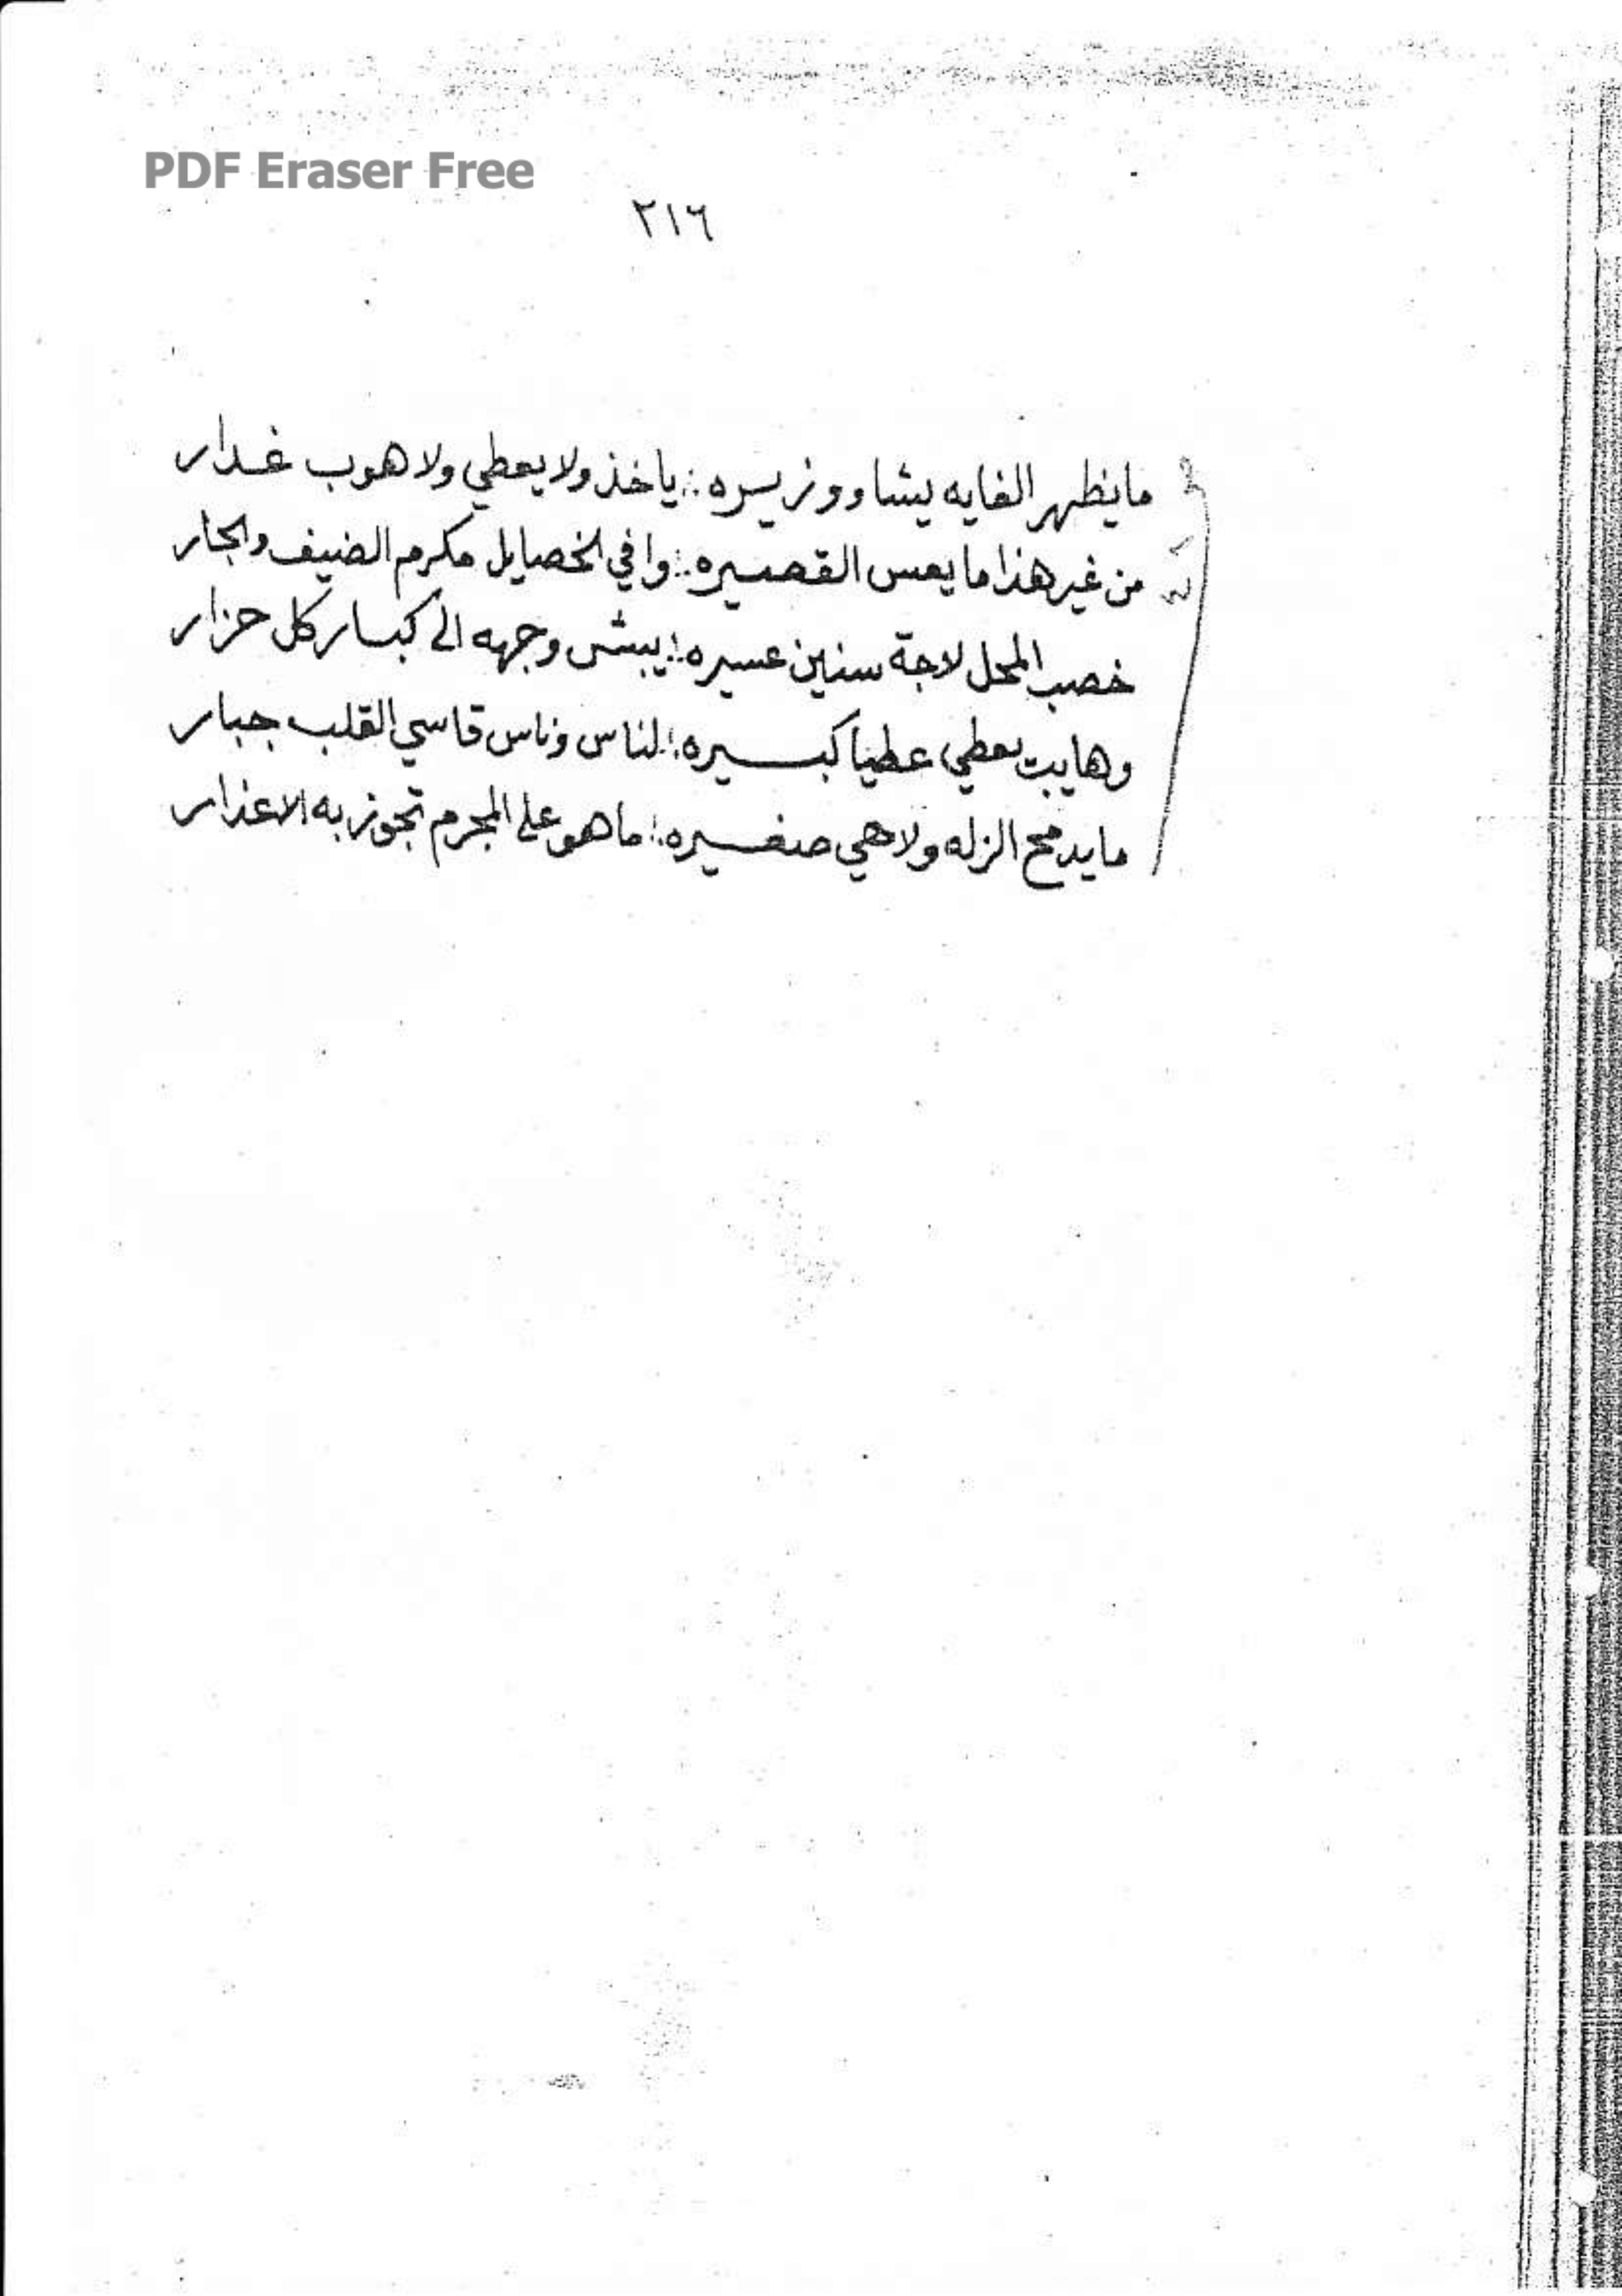 PDF Eraser Free
٢١٦
ما يظهر الغايه يشاور وزيره ∴ ياخذ ولا يعطي ولا هوب غدار
من غير هذا ما يعس القصيره ∴ وافي الخصايل مكرم الضيف والجار
خصب المحل لاجة سنين عسيره ∴ يبشى وجهه الى كبار كل حزار
وهايبت يعطي عطيا كبيره ∴ لناس وناس قاسي القلب جبار
ما يدمح الزله ولا هي صغيره ∴ ما هو على المجرم تجوز به الاعذار